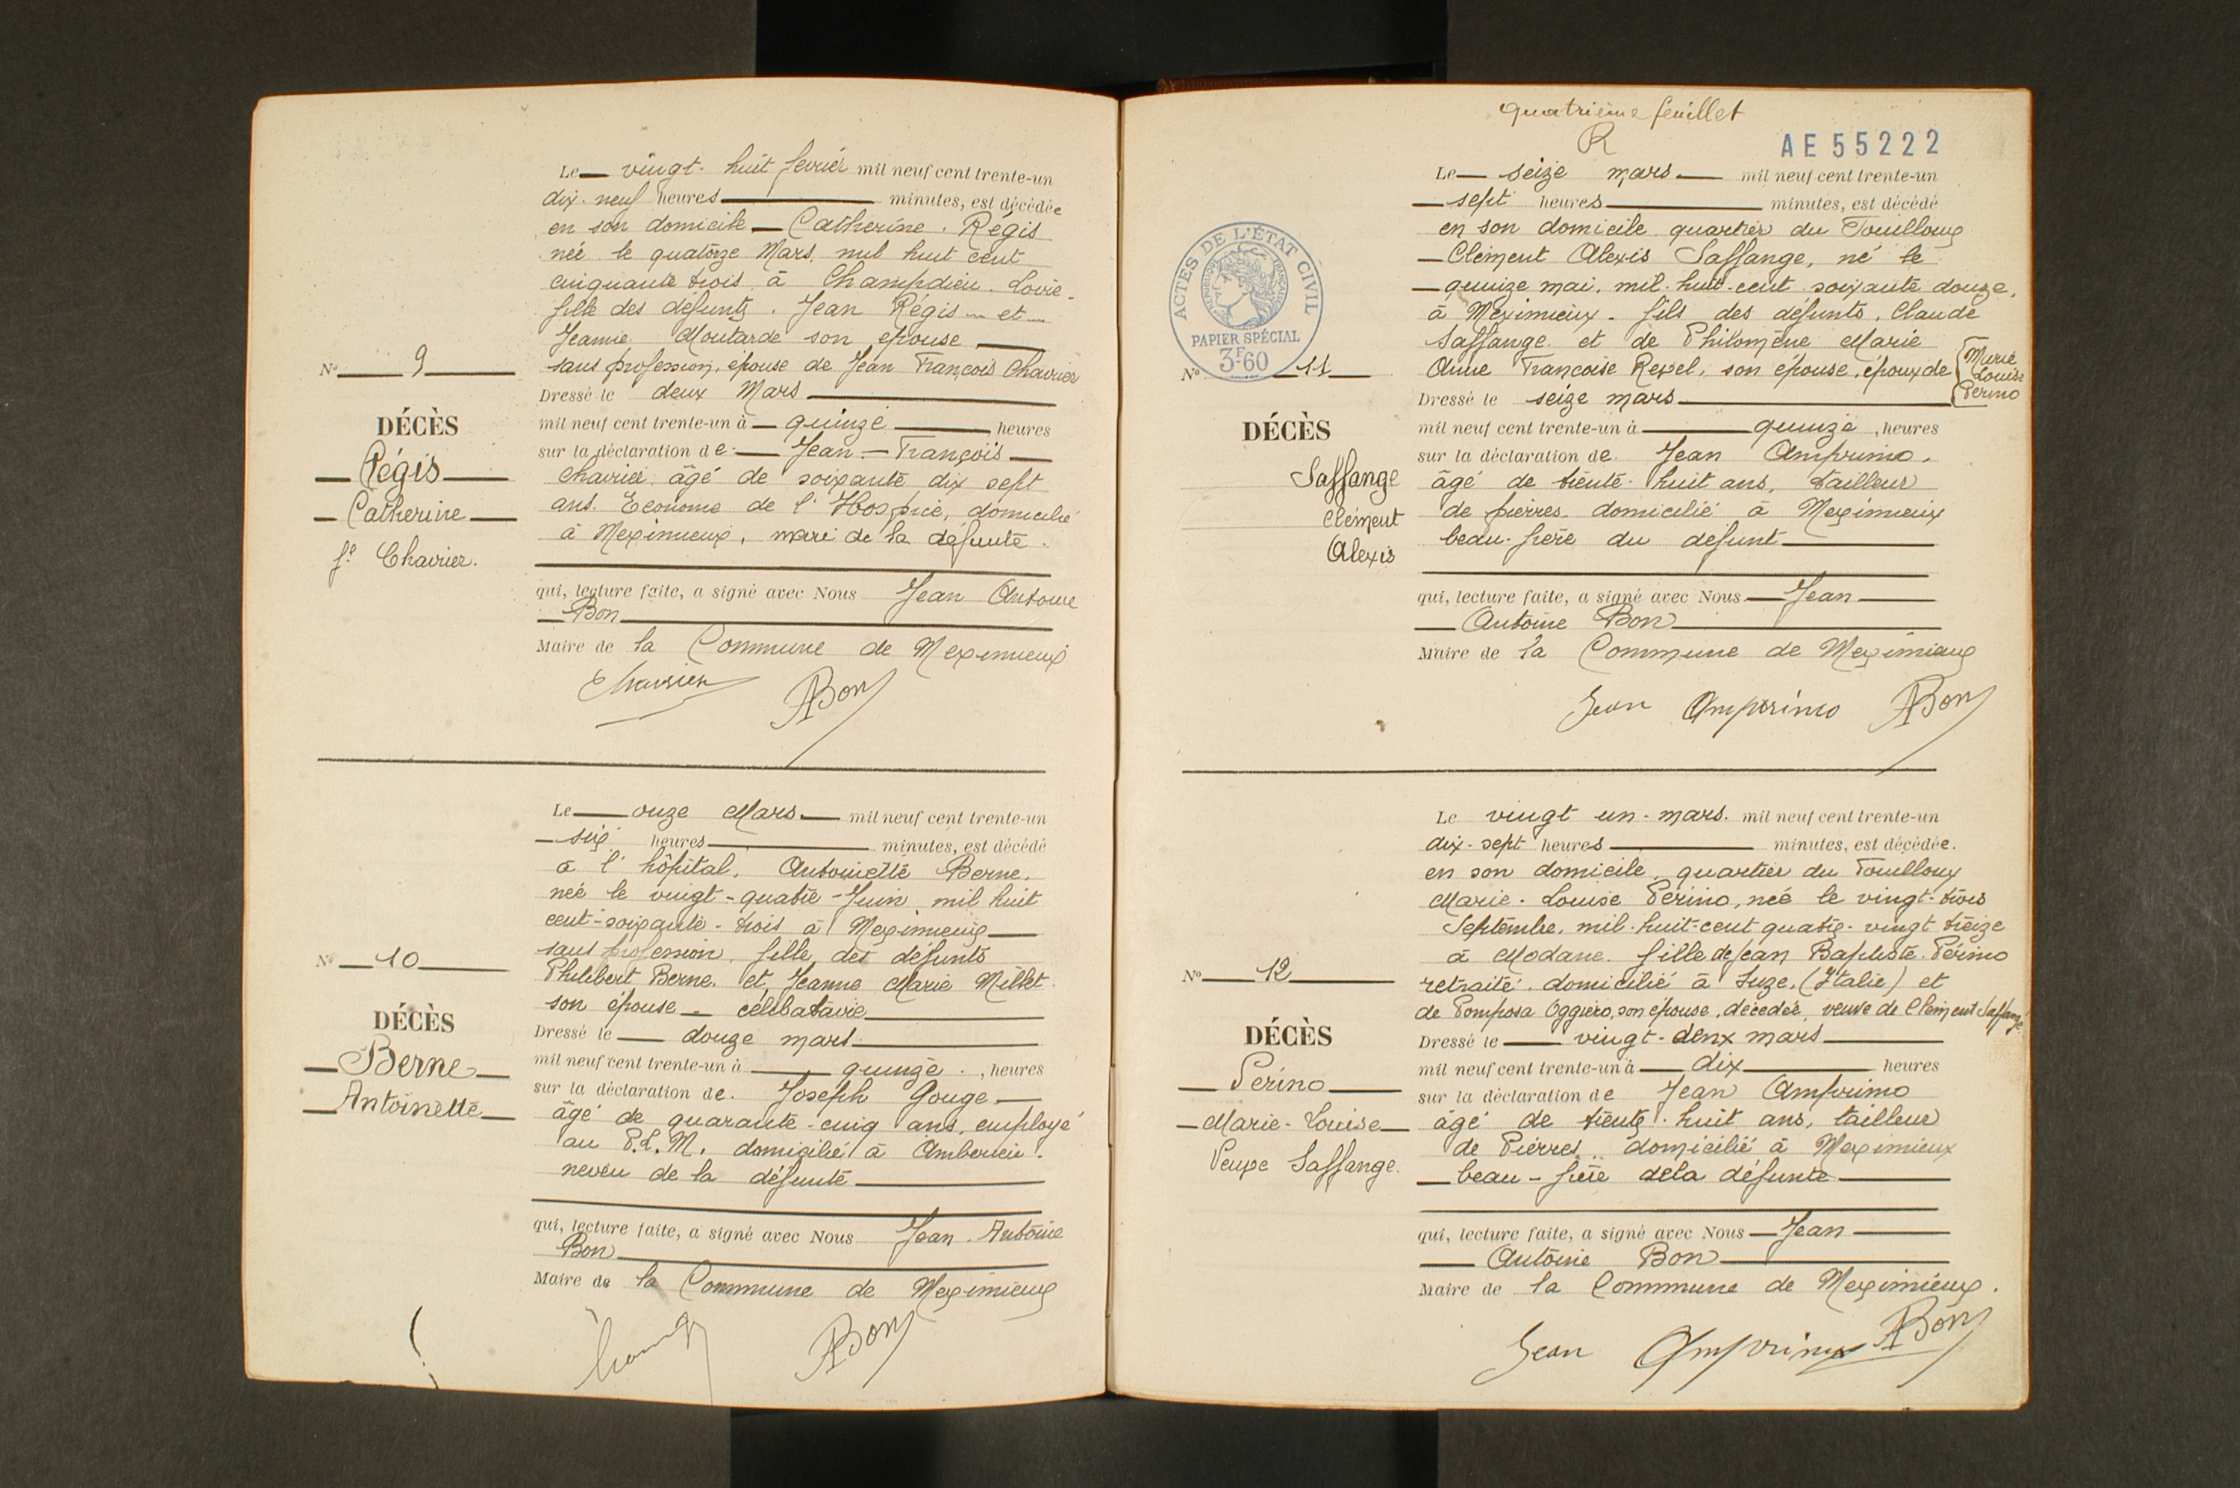 Le vingt-huit fevrier mil neuf cent trente-un
dix-neuf heures minutes, est décédée
en son domicile Catherine Régis
née le quatorze Mars mil huit cent
cinquante trois à Champdieu. Loire.
fille des défunts. Jean Régis et
Jeanne Moutarde son épouse
sans profession, épouse de Jean François Chavrier
N° 9
Dressé le deux Mars
DÉCÈS
mil neuf cent trente-un à quinze heures
Régis
sur la déclaration de Jean-François
Catherine
Chavrier âgé de soixante dix sept
fe Chavrier.
ans. Econome de l'Hospice, domicilié
à Meximieux, mari de la défunte.
qui, lecture faite, a signé avec Nous Jean Antoine
Bon
Maire de la Commune de Meximieux
Chavrier ABon
Le onze Mars mil neuf cent trente-un
six heures minutes, est décédé
à l'hôpital, Antoinette Berne,
née le vingt-quatre Juin mil huit
cent-soixante-trois à Meximieux
sans profession, fille des défunts
Philibert Berne et Jeanne Marie Millet
son épouse - célibataire
N° 10
Dressé le douze mars
DÉCÈS
mil neuf cent trente-un à quinze, heures
Berne
sur la déclaration de Joseph Gouge
Antoinette
âgé de quarante-cinq ans, employé
au P.L.M. domicilié à Amberieu.
neveu de la défunte
qui, lecture faite, a signé avec Nous Jean Antoine
Bon
Maire de la Commune de Meximieux
ABon
quatrième feuillet
R
AE 55222
ACTES DE L'ÉTAT CIVIL
PAPIER SPÉCIAL
3F60
Le seize mars mil neuf cent trente-un
sept heures minutes, est décédé
en son domicile quartier du Touilloux
Clément Alexis Saffange, né le
quinze mai, mil-huit-cent soixante douze,
à Méximieux. fils des défunts, Claude
Saffange et de Philomène Marie
Anne Françoise Revel, son épouse, époux de Marie Louise Perino
N° 11
Dressé le seize mars
DÉCÈS
mil neuf cent trente-un à quinze, heures
Saffange
sur la déclaration de Jean Amprimo,
Clément
âgé de trente-huit ans, tailleur
Alexis
de pierres domicilié à Meximieux
beau-frère du défunt
qui, lecture faite, a signé avec Nous Jean
Antoine Bon
Maire de la Commune de Meximieux
Jean Amprimo ABon
Le vingt-un-mars. mil neuf cent trente-un
dix-sept heures minutes, est décédée.
en son domicile, quartier du Touilloux
Marie-Louise Perino, née le vingt-trois
Septembre, mil-huit-cent quatre-vingt treize
à Modane. fille de Jean Baptiste Périno
retraité domicilié à Suze, (Italie) et
de Pomposa Oggiero, son épouse, décédée, veuve de Clément Saffange.
N° 12
Dressé le vingt-deux mars
DÉCÈS
mil neuf cent trente-un à dix heures
Perino
sur la déclaration de Jean Amprimo
Marie-Louise
âgé de trente-huit ans, tailleur
Veuve Saffange.
de Pierres domicilié à Meximieux
beau-frère dela défunte
qui, lecture faite, a signé avec Nous Jean
Antoine Bon
Maire de la Commune de Meximieux.
Jean Amprimo ABon